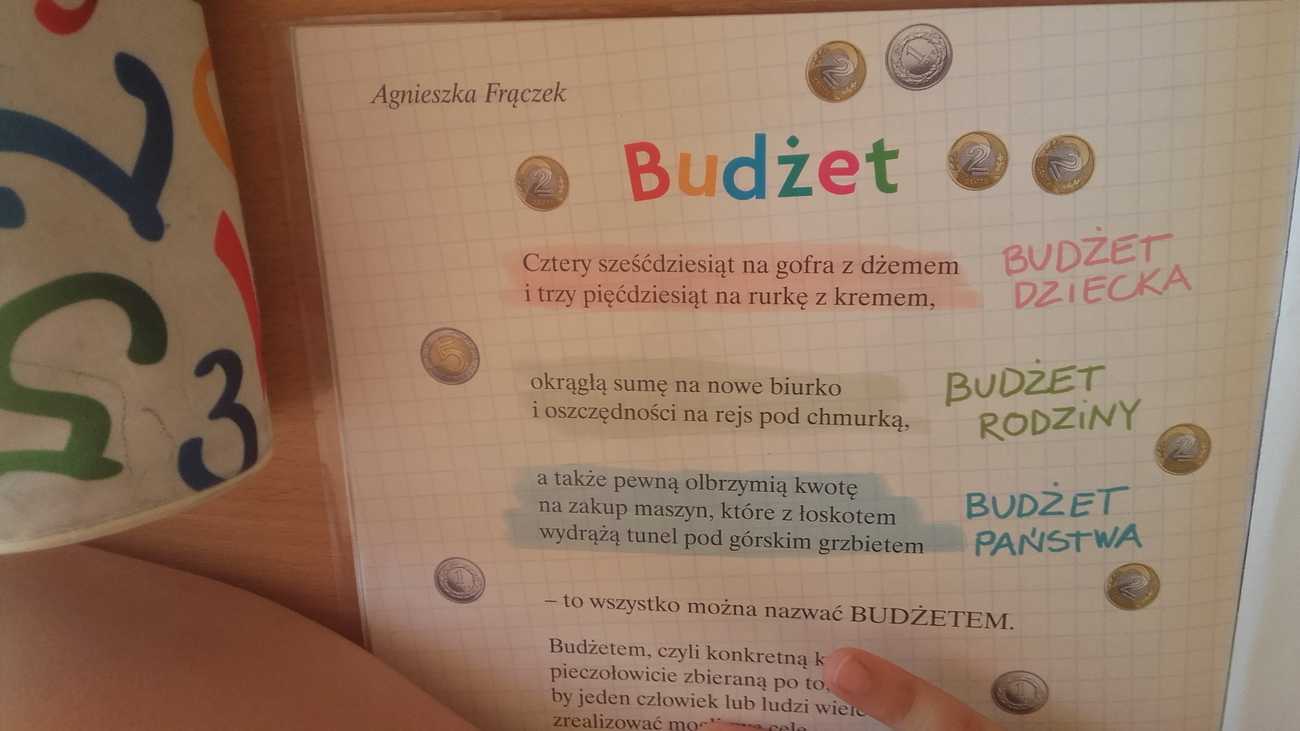 Agnieszka Frączek
Budżet
Cztery sześćdziesiąt na gofra z dżemem
i trzy pięćdziesiąt na rurkę z kremem,
BUDŻET
DZIECKA
okrągłą sumę na nowe biurko
i oszczędności na rejs pod chmurką,
BUDŻET
RODZINY
a także pewną olbrzymią kwotę
na zakup maszyn, które z łoskotem
wydrążą tunel pod górskim grzbietem
BUDŻET
PAŃSTWA
– to wszystko można nazwać BUDŻETEM.
Budżetem, czyli konkretną
pieczołowicie zbieraną po to,
by jeden człowiek lub ludzi wiele
zrealizować